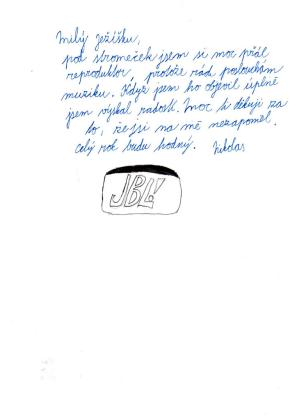 Milý Ježíšku,
pod stromeček jsem si moc přál
reproduktor, protože rád poslouchám
muziku. Když jsem ho objevil úplně
jsem výskal radostí. Moc ti děkuji za
to, že jsi na mě nezapoměl.
Celý rok budu hodný. Nikolas
JBL!